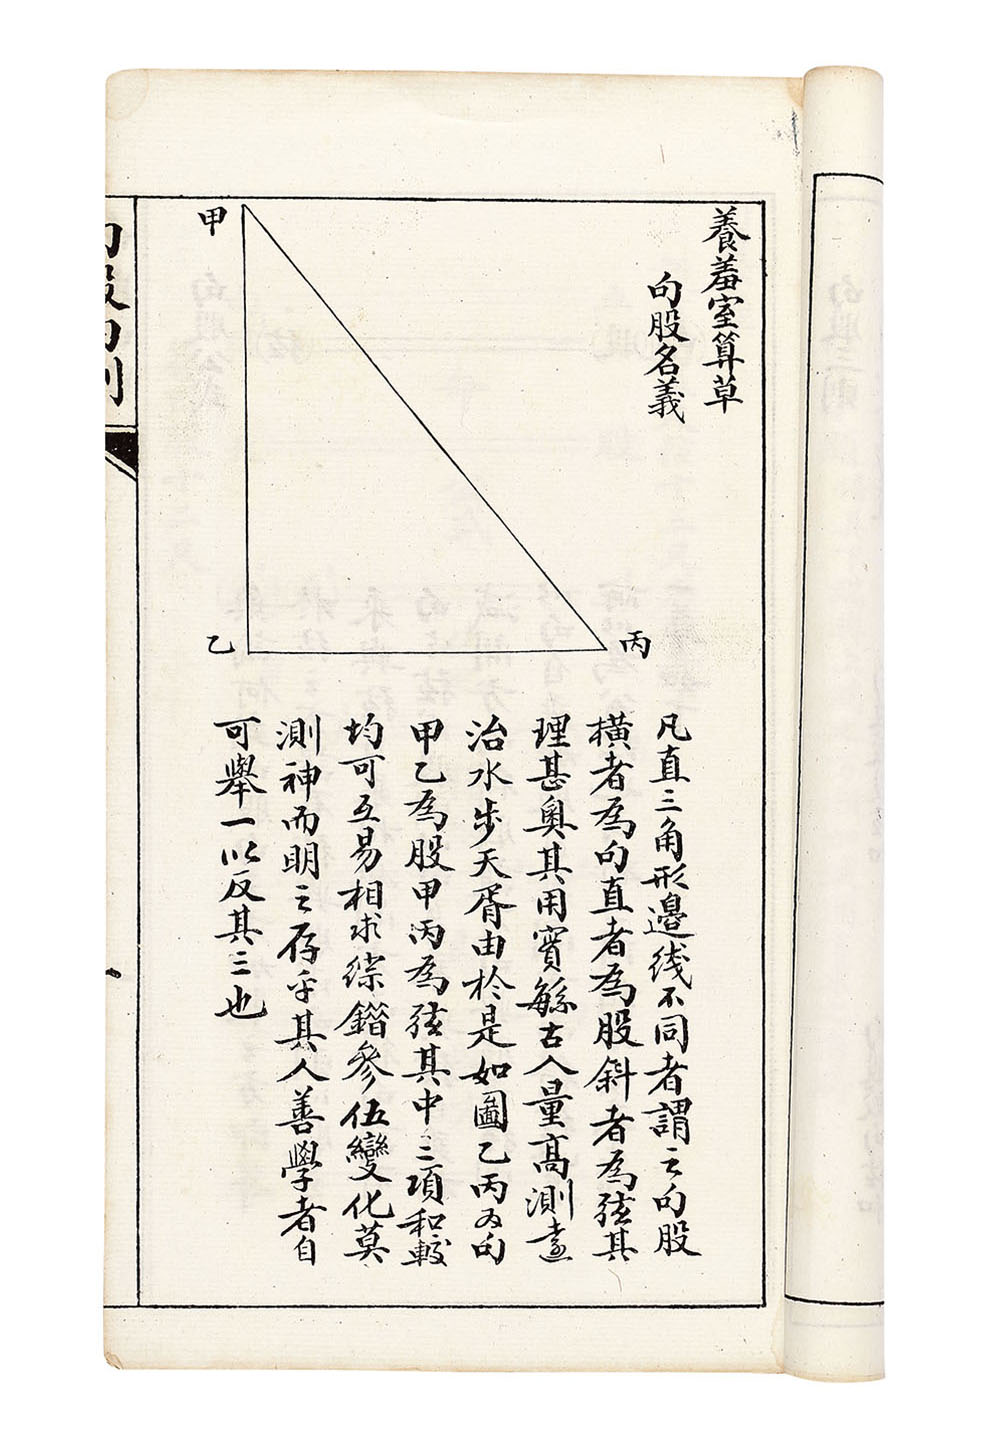 養羞室算草
句股名義
甲
乙
丙
凡直三角形邊线不同者謂之句股
橫者為句直者為股斜者為弦其
理甚奧其用實繇古人量高測遠
治水步天胥由於是如圖乙丙為句
甲乙為股甲丙為弦其中三項和較
均可互易相求綜錯參伍變化莫
測神而明之存乎其人善學者自
可舉一以反其三也